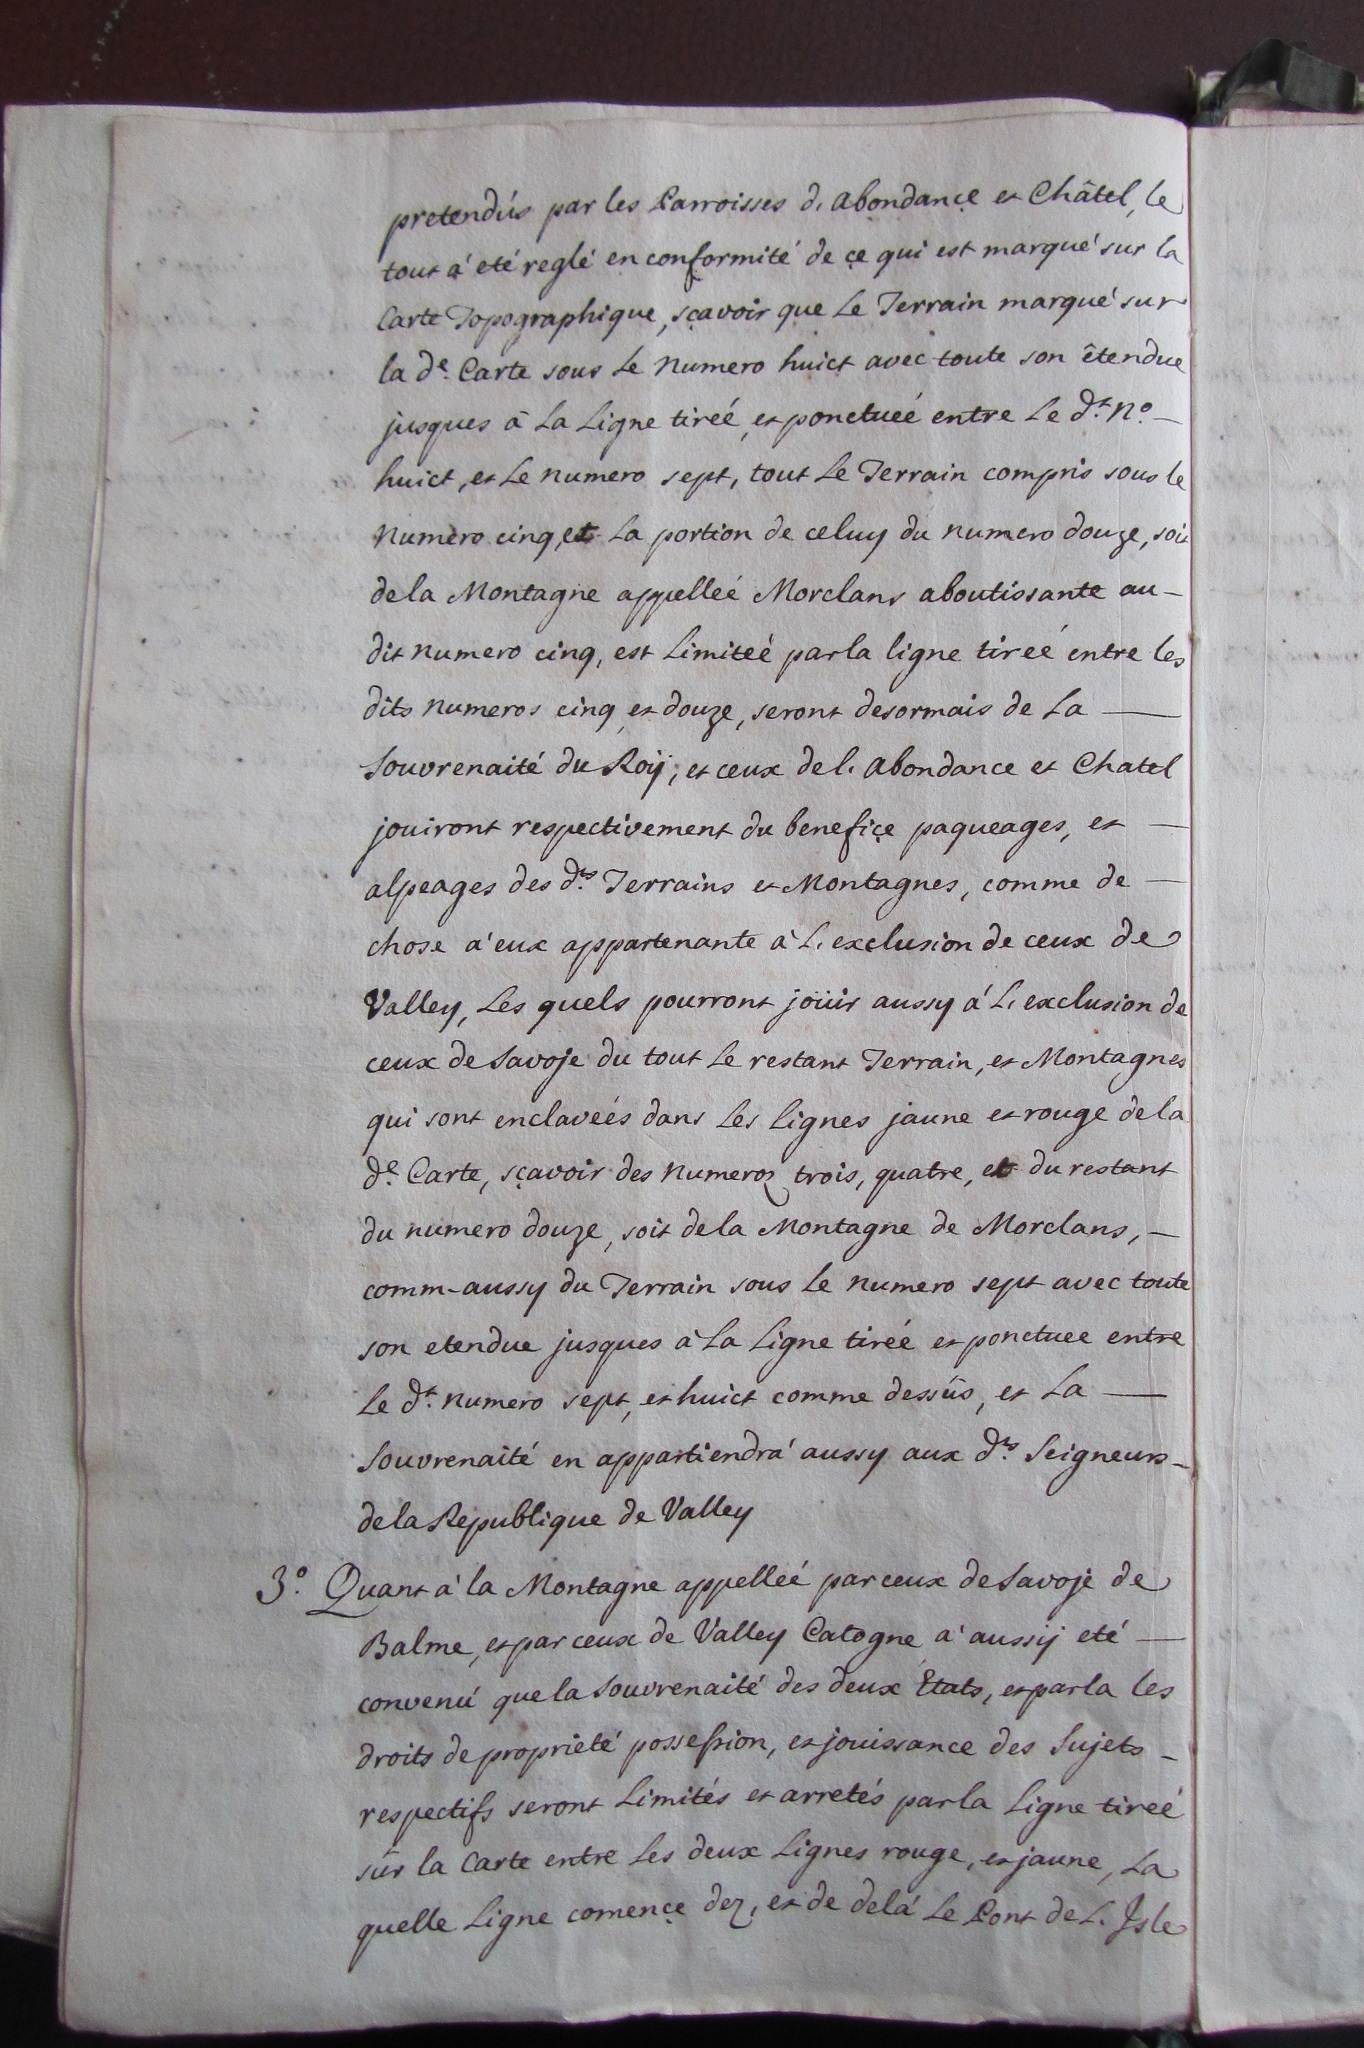 pretendús par les Parroisses d. Abondançe et Châtel, le
tout á eté reglé en conformité de çe qui est marqué sur la
Carte Topographique, sçavoir que Le Terrain marqué sur
la d.e Carte sous Le Numero huict avec toute son êtendue
jusques à La Ligne tireé, et ponctueé entre Le d.t N.o —
huict, et Le numero sept, tout Le Terrain compris sous le
Numero cinq, et La portion de celuy du numero douze, soit
de la Montagne appelleé Morclans aboutissante au-
dit numero cinq, est Limiteé par la ligne tireé entre les
dits numeros cinq et douze, seront desormais de La —
Souvrenaité du Roÿ, et ceux de l. Abondance et Chatel
jouiront respectivement du benefiçe paqueages, et —
alpeages des d.ts Terrains et Montagnes, comme de —
chose á eux appartenante à L. exclusion de ceux de
Valley, Les quels pourront joüir aussy á L. exclusion de
ceux de Savoje du tout Le restant Terrain, et Montagnes
qui sont enclaveés dans Les Lignes jaune et rouge de la
d.e Carte, sçavoir des Numeros trois, quatre, et du restant
du numero douze, soit de la Montagne de Morclans, —
comm-aussy du Terrain sous Le numero sept avec toute
son etendue jusques à La Ligne tireé et ponctuee entre
Le d.t numero sept, et huict comme dessùs, et La —
Souvrenaité en appartiendrá aussy aux d.ts Seigneurs —
de la Republique de Valley
3.o Quant á la Montagne appelleé par ceux de Savoje de
Balme, et par ceux de Valley Catogne á aussÿ eté —
convenú que la Souvrenaité des deux Etats, et par la les
droits de proprieté possession, et jouissance des Sujets —
respectifs seront Limités et arretés par la Ligne tireé
sùr la Carte entre Les deux Lignes rouge, et jaune, La
quelle Ligne començe dez, et de delá Le Pont de L. Isle